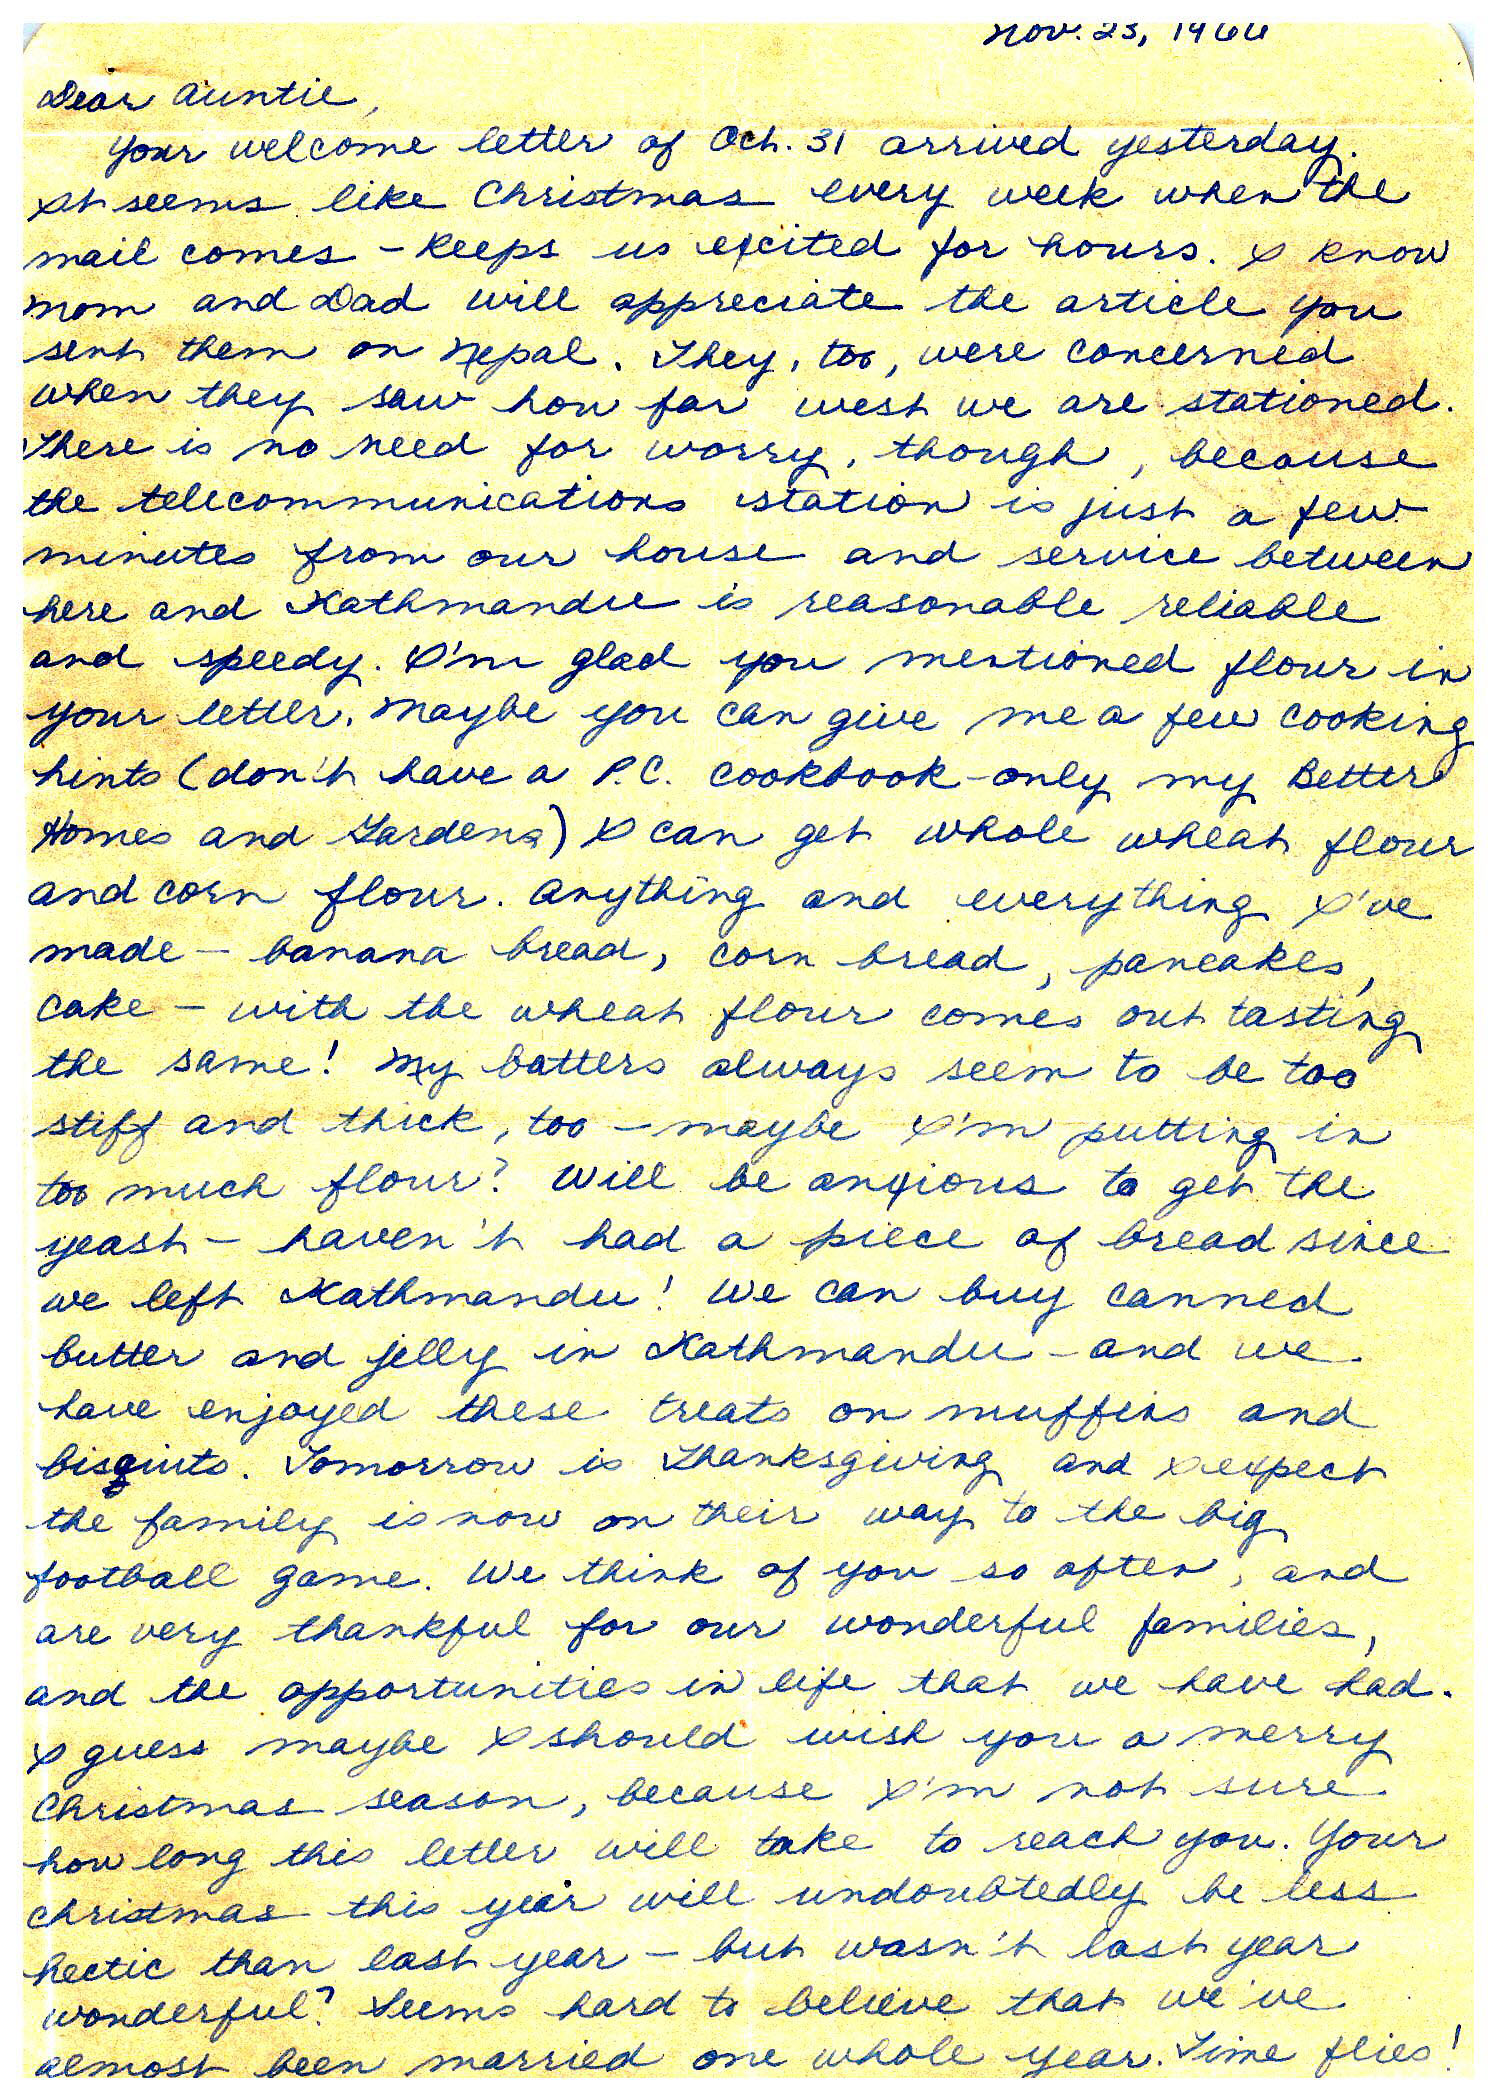 Nov. 23, 1966
Dear Auntie,
Your welcome letter of Oct. 31 arrived yesterday.
It seems like Christmas every week when the
mail comes – keeps us excited for hours. I know
Mom and Dad will appreciate the article you
sent them on Nepal. They, too, were concerned
when they saw how far west we are stationed.
There is no need for worry, though, because
the telecommunications station is just a few
minutes from our house and service between
here and Kathmandu is reasonable reliable
and speedy. I'm glad you mentioned flour in
your letter. Maybe you can give me a few cooking
hints (don't have a P.C. cookbook – only my Better
Homes and Gardens) I can get whole wheat flour
and corn flour. Anything and everything I've
made – banana bread, corn bread, pancakes,
cake – with the wheat flour comes out tasting
the same! My batters always seem to be too
stiff and thick, too – maybe I'm putting in
too much flour? Will be anxious to get the
yeast – haven't had a piece of bread since
we left Kathmandu! We can buy canned
butter and jelly in Kathmandu – and we
have enjoyed these treats on muffins and
bisquits. Tomorrow is Thanksgiving and I expect
the family is now on their way to the big
football game. We think of you so often, and
are very thankful for our wonderful families,
and the opportunities in life that we have had.
I guess maybe I should wish you a merry
Christmas season, because I'm not sure
how long this letter will take to reach you. Your
Christmas this year will undoubtedly be less
hectic than last year – but wasn't last year
wonderful? Seems hard to believe that we've
almost been married one whole year. Time flies!